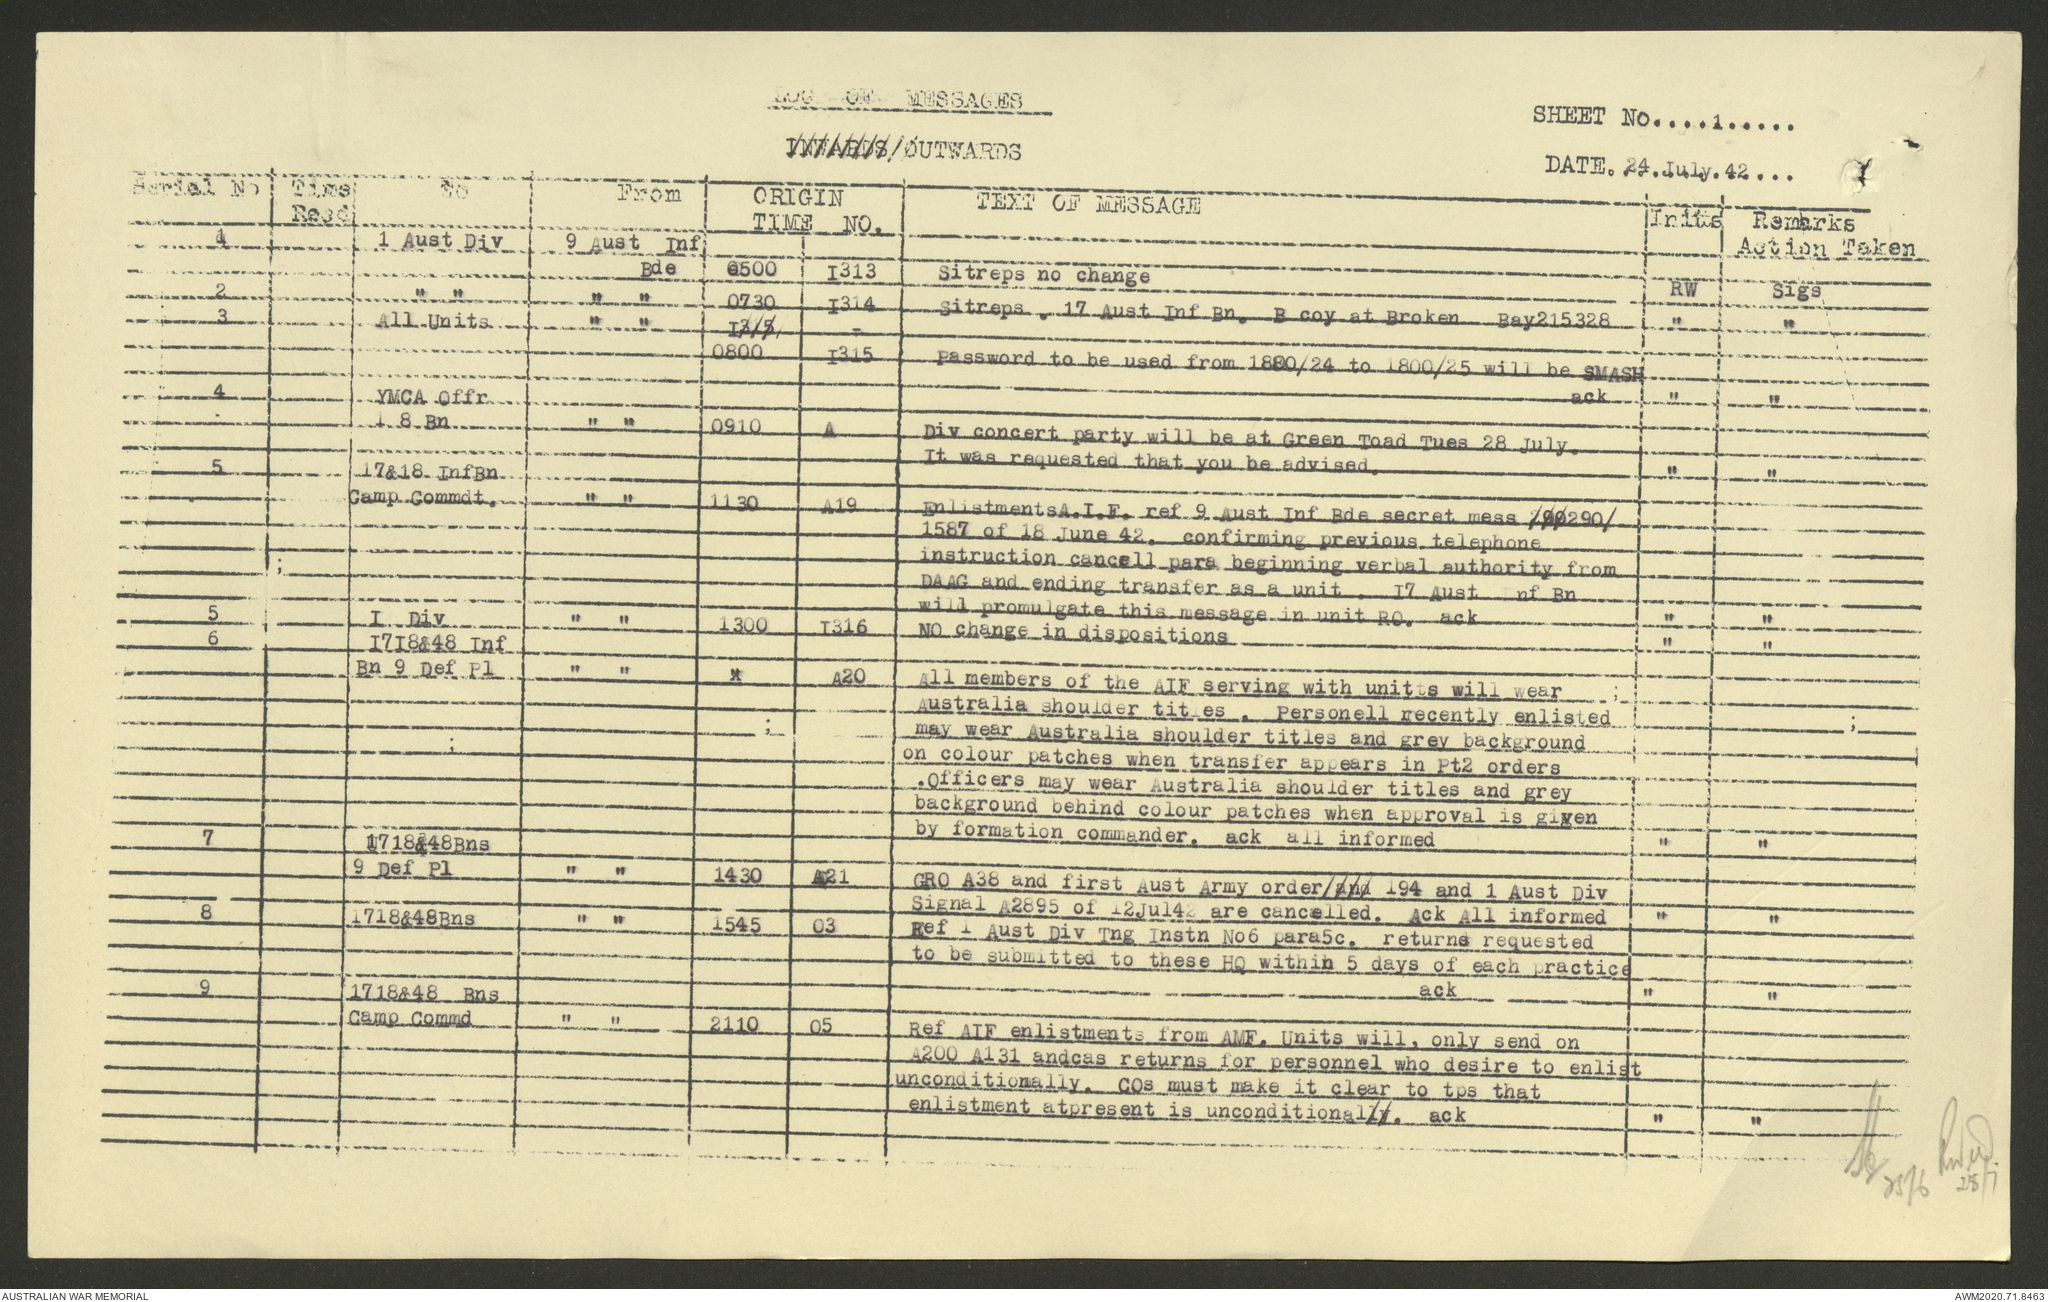 LOG OF MESSAGES
SHEET No....1.....
INWARDS/OUTWARDS
DATE.24.July.42...
Serial No Time To From ORIGIN TEXT OF MESSAGE Initts Remarks
Recd TIME NO. Action Taken
1 1 Aust Div 9 Aust Inf
Bde 0500 I313 Sitreps no change RW Sigs
2 " " " " 0730 I314 Sitreps . 17 Aust Inf Bn. B coy at Broken Bay215328 " "
3 All Units " " I315 -
0800 I315 password to be used from 1800/24 to 1800/25 will be SMASH
ack " "
4 YMCA Offr
1 8 Bn " " 0910 A Div concert party will be at Green Toad Tues 28 July.
It was requested that you be advised. " "
5 17&18 InfBn
Camp Commdt. " " 1130 A19 EnlistmentsA.I.F. ref 9 Aust Inf Bde secret mess 290/
1587 of 18 June 42. confirming previous telephone
instruction cancell para beginning verbal authority from
DAAG and ending transfer as a unit . I7 Aust Inf Bn
will promulgate this message in unit RO. ack " "
5 I Div " " 1300 I316 NO change in dispositions " "
6 I7I8&48 Inf
Bn 9 Def Pl " " " A20 All members of the AIF serving with unitts will wear
Australia shoulder titles . Personell recently enlisted
may wear Australia shoulder titles and grey background
on colour patches when transfer appears in Pt2 orders
.Officers may wear Australia shoulder titles and grey
background behind colour patches when approval is given
by formation commander. ack all informed " "
7 1718&48Bns
9 Def Pl " " 1430 A21 GRO A38 and first Aust Army order/and 194 and 1 Aust Div
Signal A2895 of 12Jul42 are cancelled. Ack All informed " "
8 1718&48Bns " " 1545 03 Ref 1 Aust Div Tng Instn No6 para5c. returns requested
to be submitted to these HQ within 5 days of each practice
ack " "
9 1718&48 Bns
Camp Commd " " 2110 05 Ref AIF enlistments from AMF. Units will, only send on
A200 A131 andcas returns for personnel who desire to enlist
unconditionally. COs must make it clear to tps that
enlistment atpresent is unconditionally. ack " "
25/6
25/7
AUSTRALIAN WAR MEMORIAL
AWM2020.71.8463